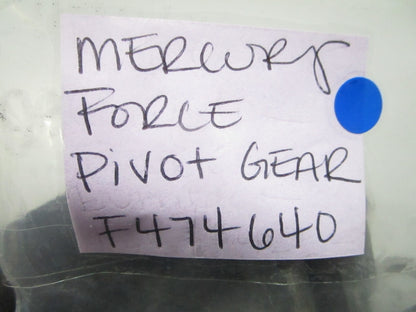 MERCURY
FORCE
PIVOT GEAR
F474640